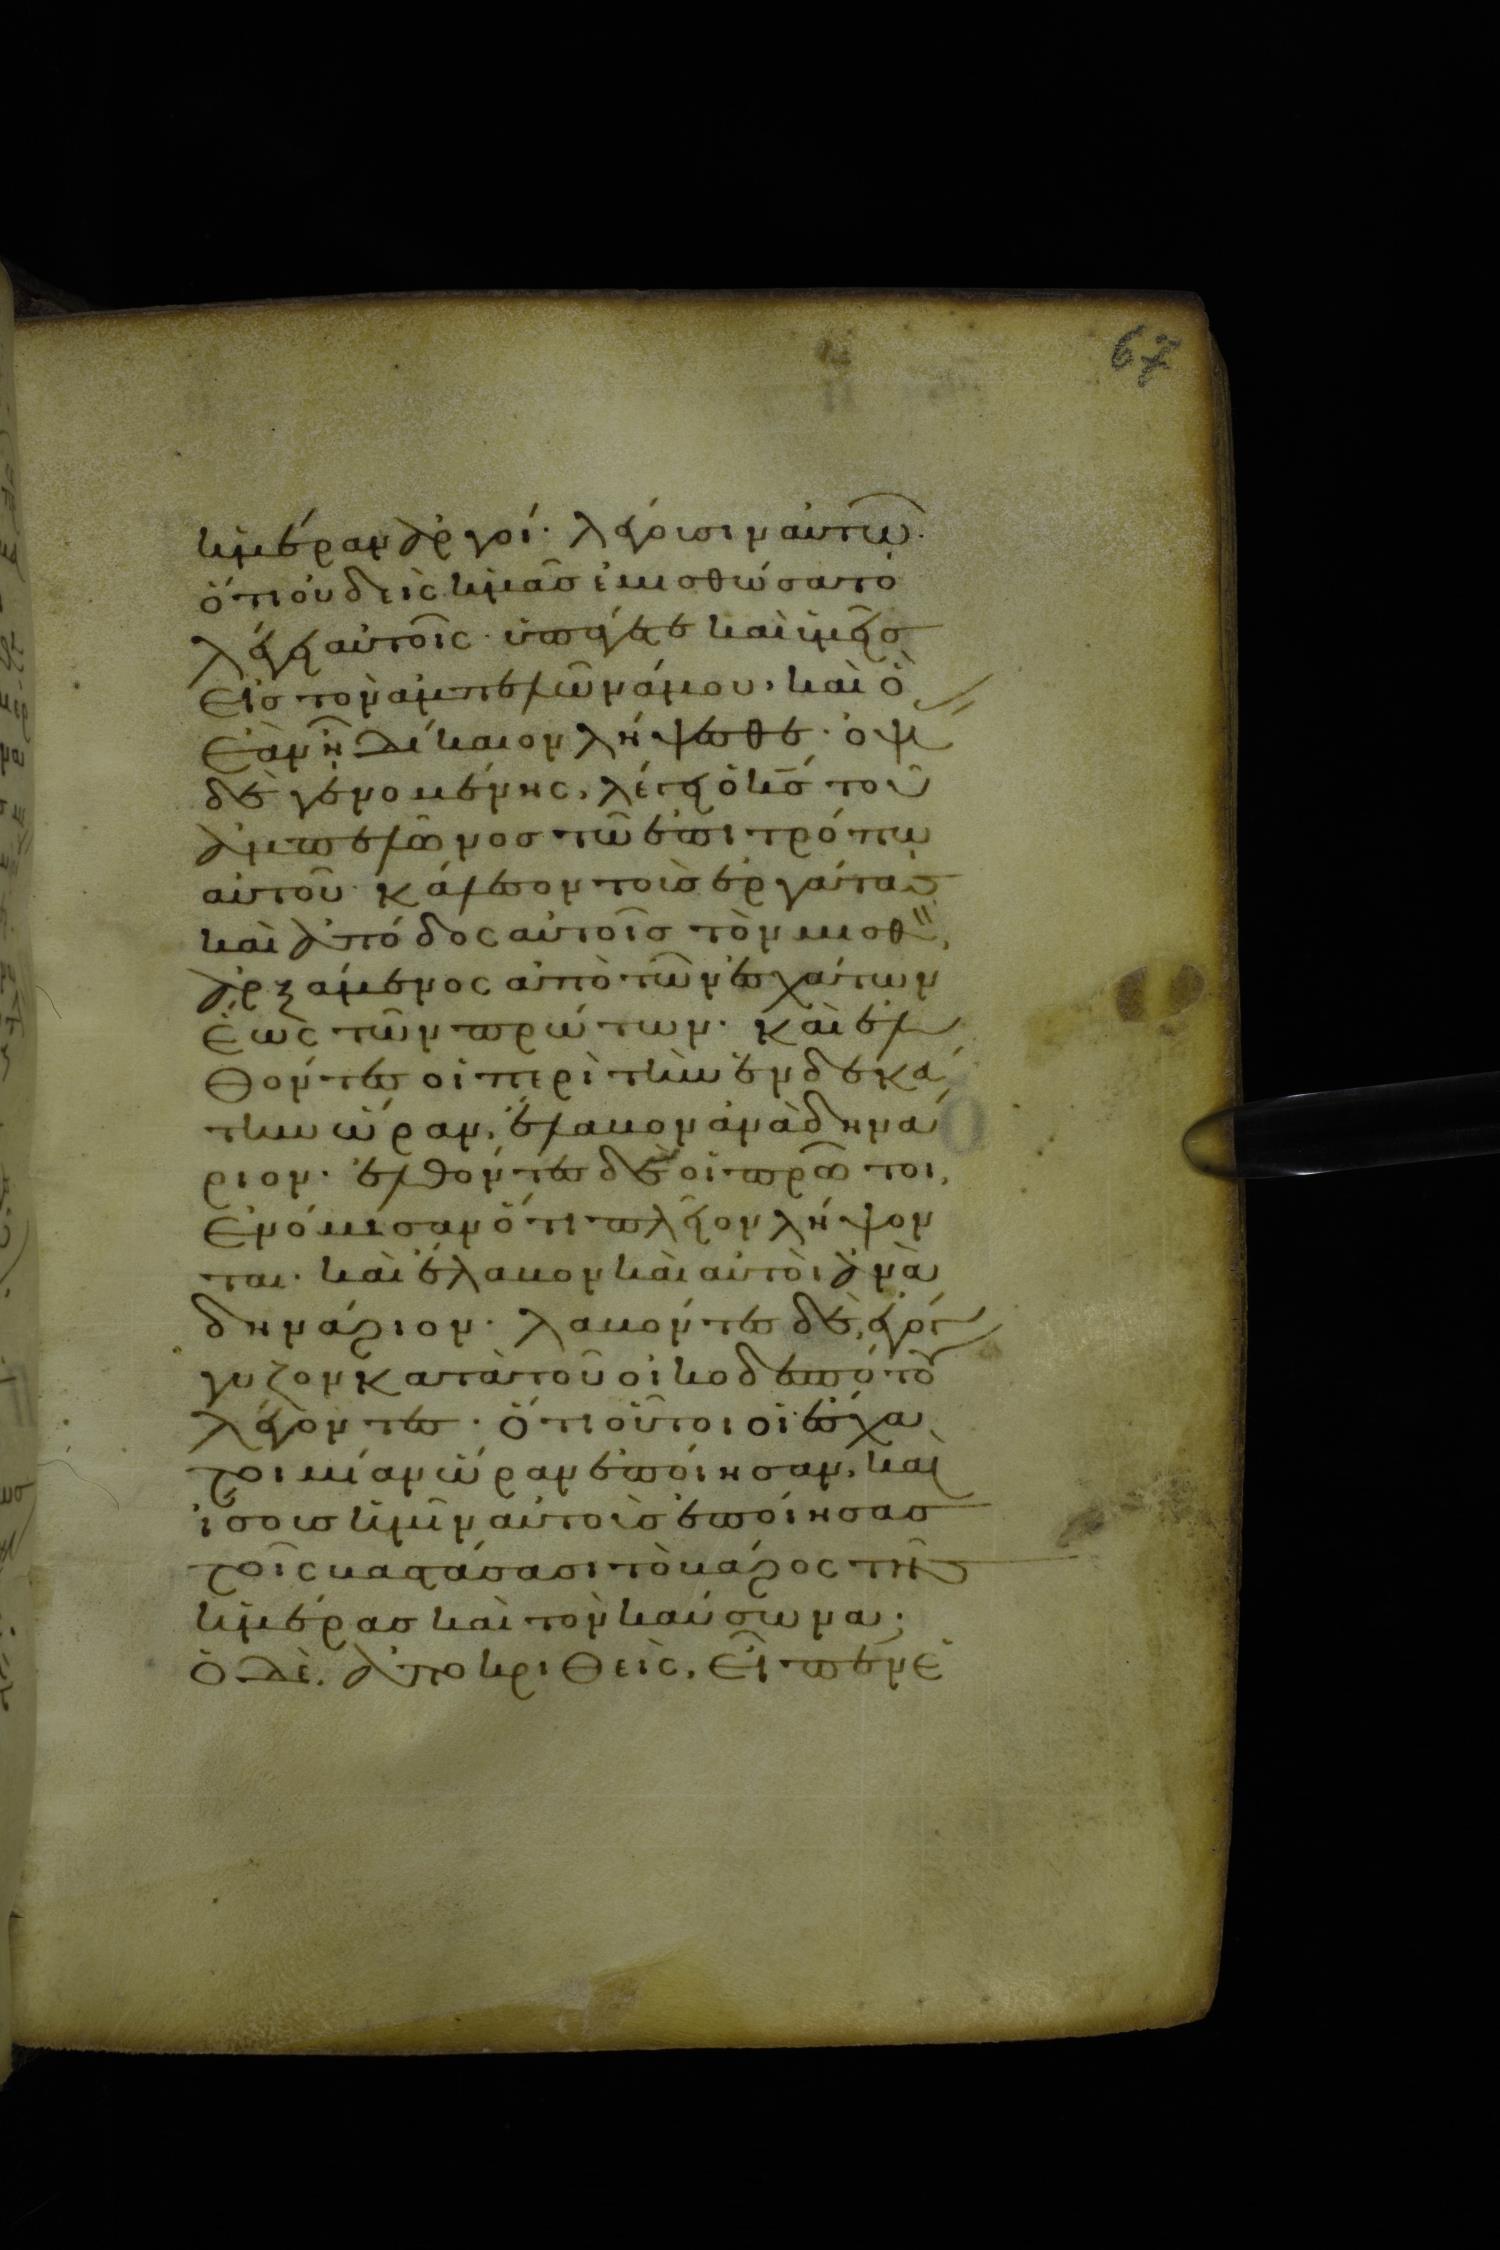 67
ἡμέραν ἀργοί· λέγουσιν αὐτῶ·
ὅτι οὐδεὶς ἡμᾶς ἐμισθώσατο
λέγει αὐτοῖς· ὑπάγετε καὶ ὑμεῖς
εἰς τὸν ἀμπελῶνά μου, καὶ ὃ
ἐὰν ἦ δίκαιον λήψεσθε· ὀψίας
δὲ γενομένης, λέγει ὁ κ̅ς̅ τοῦ
ἀμπελῶνος τῶ ἐπιτρόπω
αὐτοῦ· κάλεσον τοὺς ἐργάτας
καὶ ἀπόδος αὐτοῖς τὸν μισθ,
ἀρξάμενος ἀπὸ τῶν ἐσχάτων
ἕως τῶν πρώτων· καὶ ἐλ
θόντες οἱ περὶ τὴν ἑνδεκά
την ὥραν, ἔλαβον ἀνὰ δηνά
ριον· ἐλθόντες δὲ οἱ πρῶτοι,
ἐνόμισαν ὅτι πλεῖον λήψον
ται· καὶ ἔλαβον καὶ αὐτοὶ ἀνὰ
δηνάριον· λαβόντες δὲ, ἐγόγ
γυζον κατὰ τοῦ οἰκοδεσπότου
λέγοντες· ὅτι οὗτοι οἱ ἔσχα
τοι μίαν ὥραν ἐποίησαν, καὶ
ἴσους ἡμῖν αὐτοὺς ἐποίησας
τοῖς βαστάσασι τὸ βάρος τῆς
ἡμέρας καὶ τὸν καύσωνα·
ὁ δὲ, ἀποκριθεὶς, εἶπεν ἑ